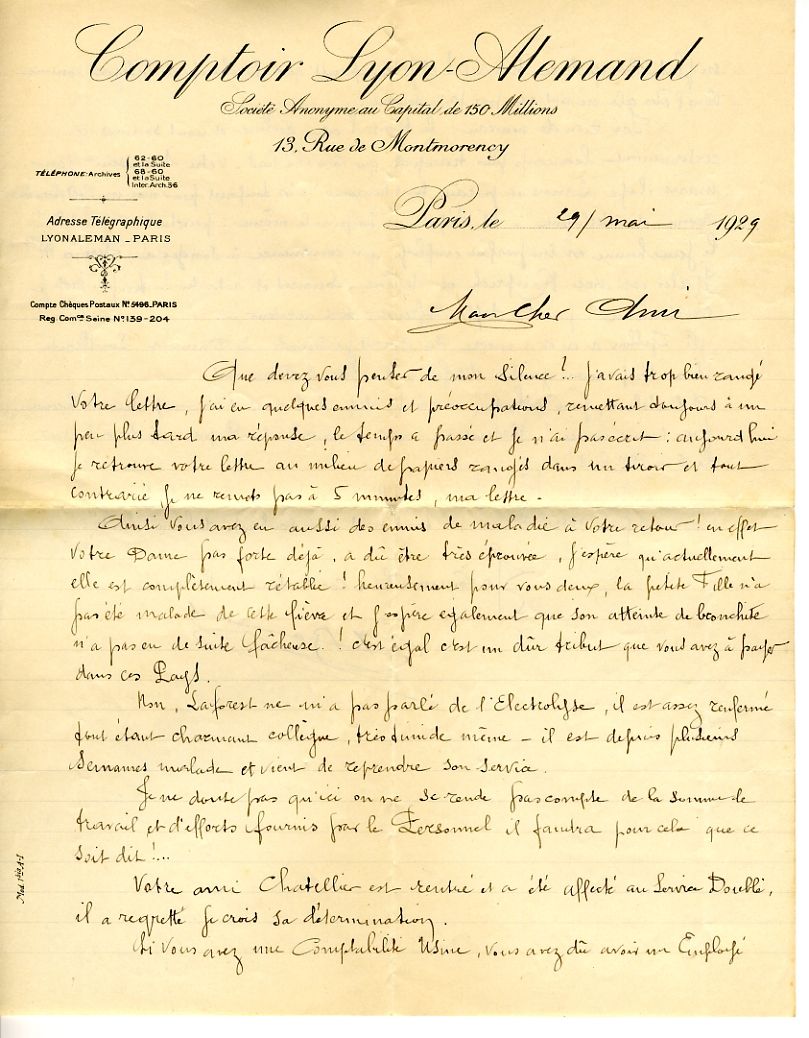 Comptoir Lyon-Alemand
Société Anonyme au Capital de 150 Millions
13, Rue de Montmorency
TÉLÉPHONE: Archives
62-60
et la Suite
68-60
et la Suite
Inter. Arch. 36
Adresse Télégraphique
LYONALEMAN _ PARIS
Compte Chèques Postaux Nº 5496_PARIS
Reg. Comce Seine Nº 139-204
Paris, le 29/ mai 1929
Mon Cher Ami
Que devez vous penser de mon silence !.. j'avais trop bien rangé
votre lettre, j'ai eu quelques ennuis et préoccupations, remettant toujours à un
peu plus tard ma réponse, le temps a passé et je n'ai pas écrit : aujourd'hui
je retrouve votre lettre au milieu de papiers rangés dans un tiroir et tout
contrarié, je ne remets pas à 5 minutes, ma lettre.
Ainsi vous avez eu aussi des ennuis de maladie à votre retour ! en effet
votre Dame pas forte déjà, a dû être très éprouvée, j'espère qu'actuellement
elle est complètement rétablie ! heureusement pour vous deux, la petite Fille n'a
pas été malade de cette fièvre et j'espère également que son atteinte de bronchite
n'a pas eu de suite fâcheuse. ! c'est égal c'est un dûr tribut que vous avez à payer
dans ces Pays.
Non, Laforest ne m'a pas parlé de l'Electrolyse, il est assez renfermé
tout étant charmant collègue, très timide même - il est depuis plusieurs
semaines malade et vient de reprendre son service.
Je ne doute pas qu'ici on ne se rende pas compte de la somme de
travail et d'efforts fournis par le Personnel il faudra pour cela que ce
soit dit !...
Votre ami Chatellier est rentré et a été affecté au Service Doublé,
il a regretté je crois sa détermination.
Si vous avez une Comptabilité Usine, vous avez dû avoir un Employé